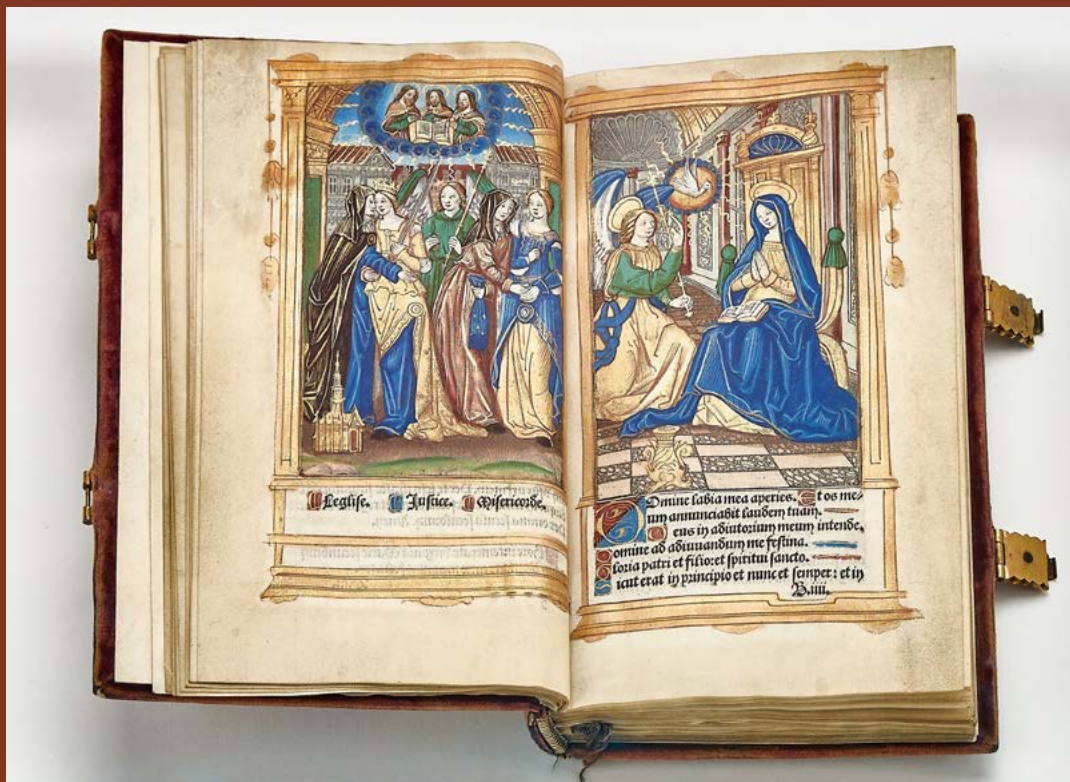 Leglise. Justice. Misericorde.
Domine labia mea aperies. Et os me-
um annunciabit laudem tuam.
Deus in adiutorium meum intende.
Domine ad adiuuandum me festina.
Gloria patri et filio: et spiritui sancto.
Sicut erat in principio et nunc et semper: et in
B.iiii.